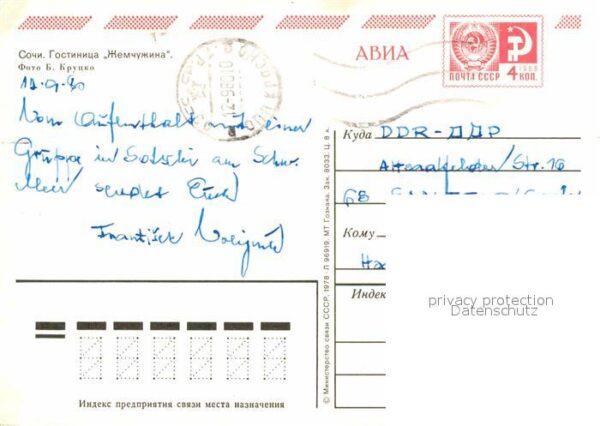 Сочи. Гостиница „Жемчужина".
Фото Б. Крупко
АВИА
ПОЧТА СССР 4 КОП.
12.9.80
Vom Aufenthalt mit einer
Gruppe in Sotschi am Schw.
Meer sendet Euch
František
Куда DDR-ДДР
Str. 16
68
Кому
Индекс
© Министерство связи СССР, 1978 - Л 96919. МТ Гознака. Зак. 8033. Ц. 8 к.
privacy protection
Datenschutz
Индекс предприятия связи места назначения